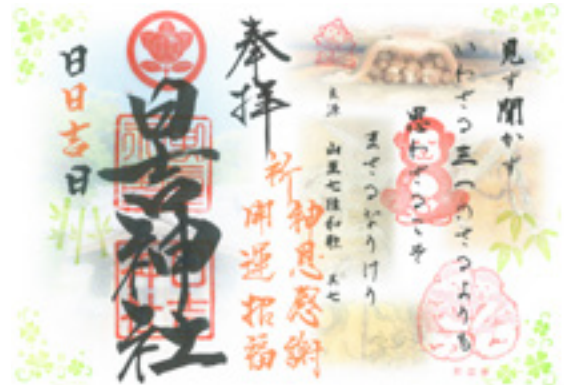 見ず聞かず
いわざる三つのさるよりも
思わざるこそ
まさるなりけり
良源 山王七猿和歌 其七
奉拝
祈
神恩感謝
開運招福
日吉神社
日日吉日